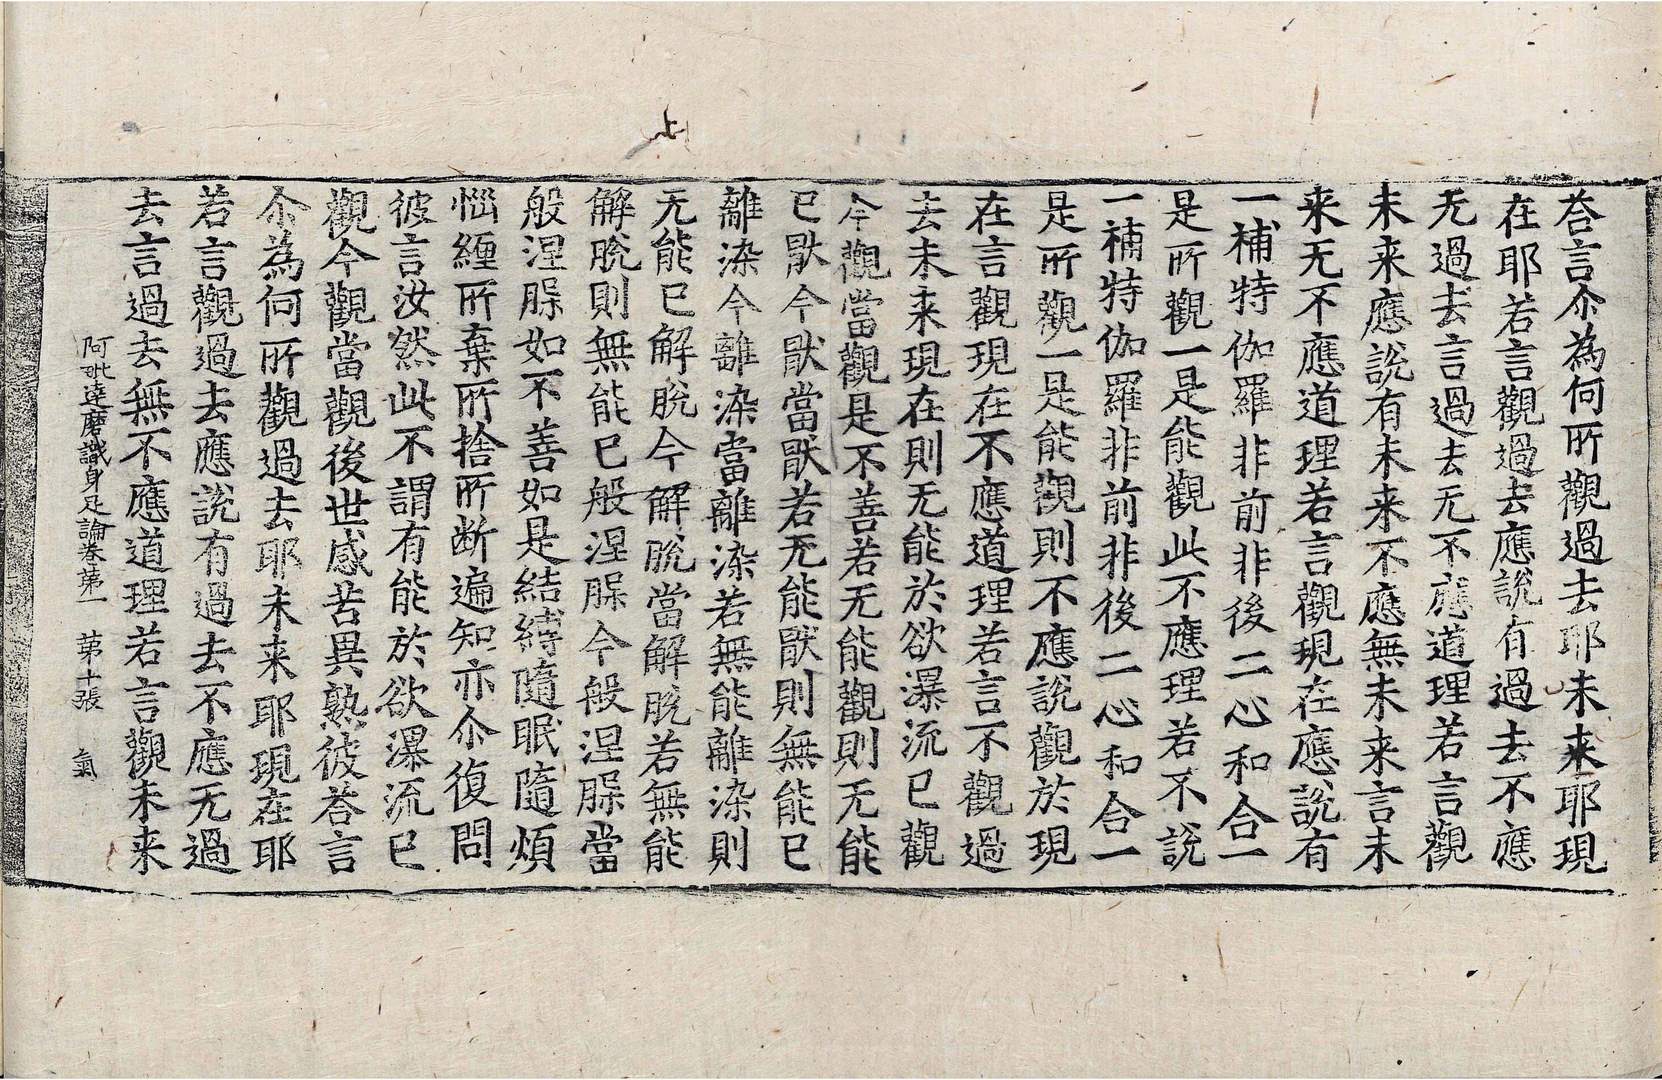 荅言尒為何所觀過去耶未来耶現
在耶若言觀過去應說有過去不應
无過去言過去无不應道理若言觀
未来應說有未来不應無未来言未
来无不應道理若言觀現在應說有
一補特伽羅非前非後二心和合一
是所觀一是能觀此不應理若不說
一補特伽羅非前非後二心和合一
是所觀一是能觀則不應說觀於現
在言觀現在不應道理若言不觀過
去未来現在則无能於欲瀑流已觀
今觀當觀是不善若无能觀則无能
已猒今猒當猒若无能猒則無能已
離染今離染當離染若無能離染則
无能已解脫今解脫當解脫若無能
解脫則無能已般涅槃今般涅槃當
般涅槃如不善如是結縛隨眠隨煩
惱纏所棄所捨所断遍知亦尒復問
彼言汝然此不謂有能於欲瀑流已
觀今觀當觀後世感苦異熟彼荅言
尒為何所觀過去耶未来耶現在耶
若言觀過去應說有過去不應无過
去言過去無不應道理若言觀未来
阿毗達磨識身足論卷第一　第十張　氣